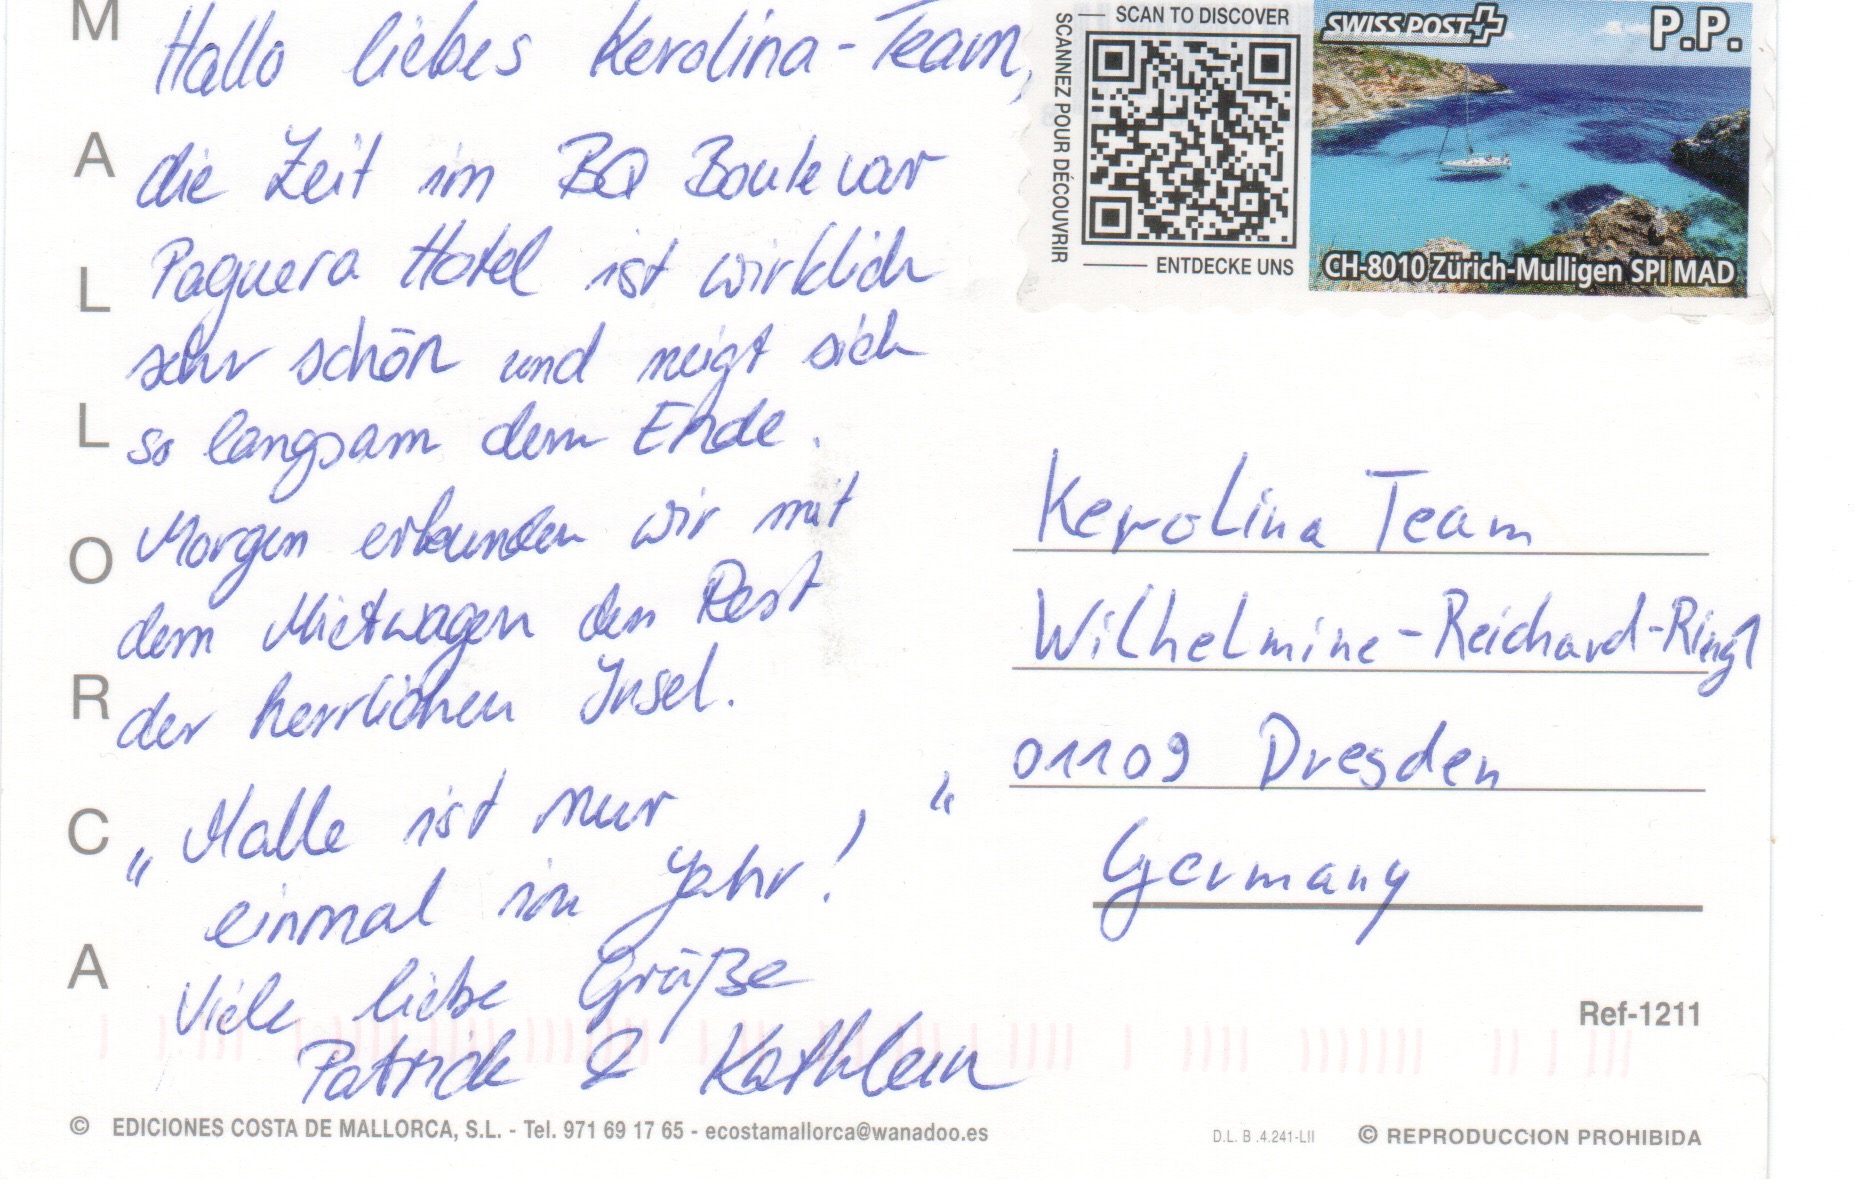 MALLORCA
Hallo liebes Kerolina-Team,
die Zeit im BQ Boulevar
Paguera Hotel ist wirklich
sehr schön und neigt sich
so langsam dem Ende.
Morgen erkunden wir mit
dem Mietwagen den Rest
der herrlichen Insel.
„Malle ist nur
einmal im Jahr!“
Viele liebe Grüße
Patrick & Kathleen
SCAN TO DISCOVER
SCANNEZ POUR DÉCOUVRIR
ENTDECKE UNS
SWISS POST
P.P.
CH-8010 Zürich-Mulligen SPI MAD
Kerolina Team
Wilhelmine-Reichard-Ring 1
01109 Dresden
Germany
Ref-1211
© EDICIONES COSTA DE MALLORCA, S.L. - Tel. 971 69 17 65 - ecostamallorca@wanadoo.es
D.L. B .4.241-LII
© REPRODUCCION PROHIBIDA